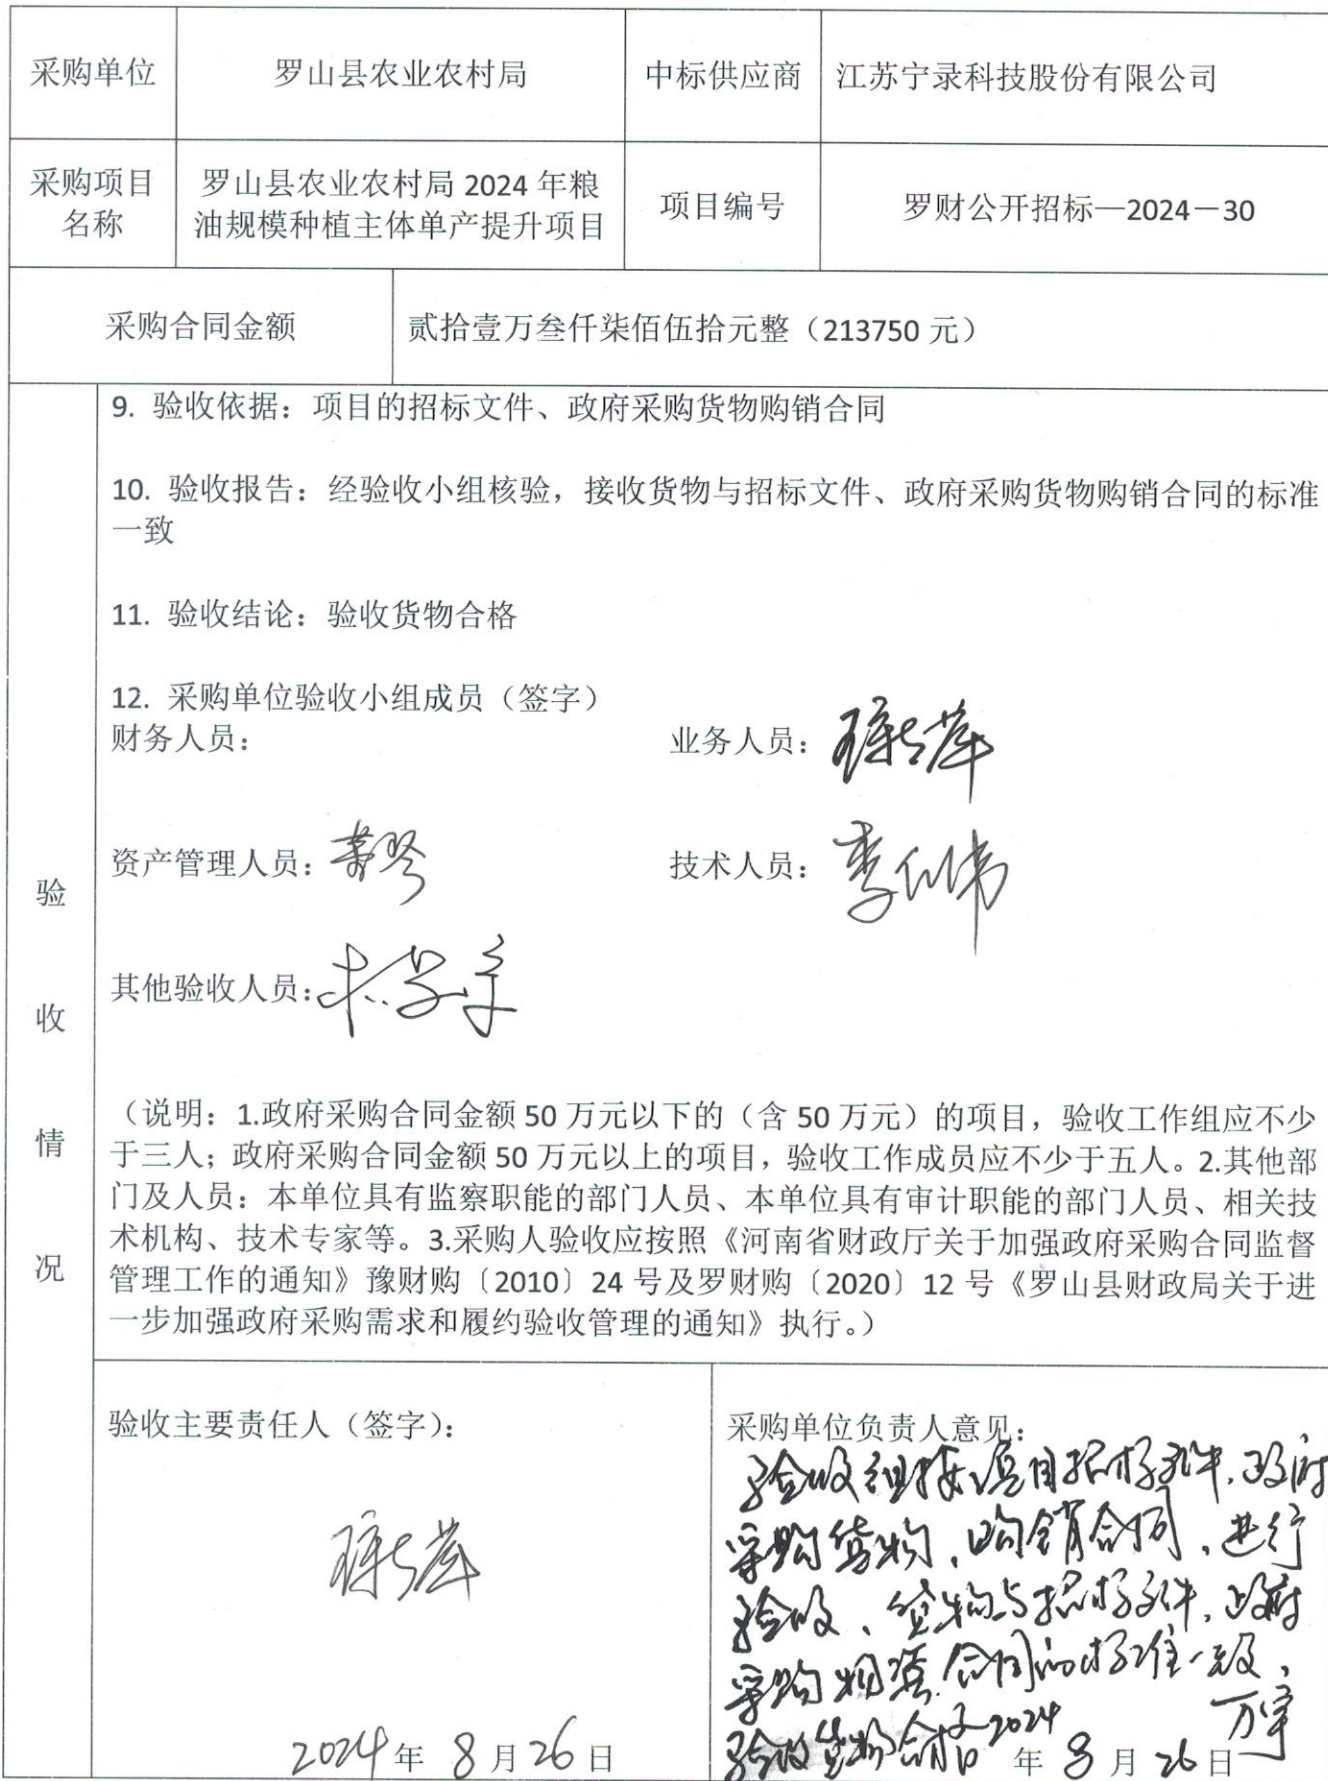 采购单位 罗山县农业农村局 中标供应商 江苏宁录科技股份有限公司
采购项目
名称
罗山县农业农村局 2024 年粮
油规模种植主体单产提升项目
项目编号 罗财公开招标—2024－30
采购合同金额 贰拾壹万叁仟柒佰伍拾元整（213750 元）
验收情况
9. 验收依据：项目的招标文件、政府采购货物购销合同
10. 验收报告：经验收小组核验，接收货物与招标文件、政府采购货物购销合同的标准
一致
11. 验收结论：验收货物合格
12. 采购单位验收小组成员（签字）
财务人员： 业务人员：
资产管理人员： 技术人员：
其他验收人员：
（说明：1.政府采购合同金额 50 万元以下的（含 50 万元）的项目，验收工作组应不少
于三人；政府采购合同金额 50 万元以上的项目，验收工作成员应不少于五人。2.其他部
门及人员：本单位具有监察职能的部门人员、本单位具有审计职能的部门人员、相关技
术机构、技术专家等。3.采购人验收应按照《河南省财政厅关于加强政府采购合同监督
管理工作的通知》豫财购〔2010〕24 号及罗财购〔2020〕12 号《罗山县财政局关于进
一步加强政府采购需求和履约验收管理的通知》执行。）
验收主要责任人（签字）：
2024 年 8 月 26 日
采购单位负责人意见：
验收组按项目招标文件、政府
采购货物、购销合同、进行
验收、货物与招标文件、政府
采购物资合同的标准一致，
验收货物合格 万宇
2024 年 8 月 26 日